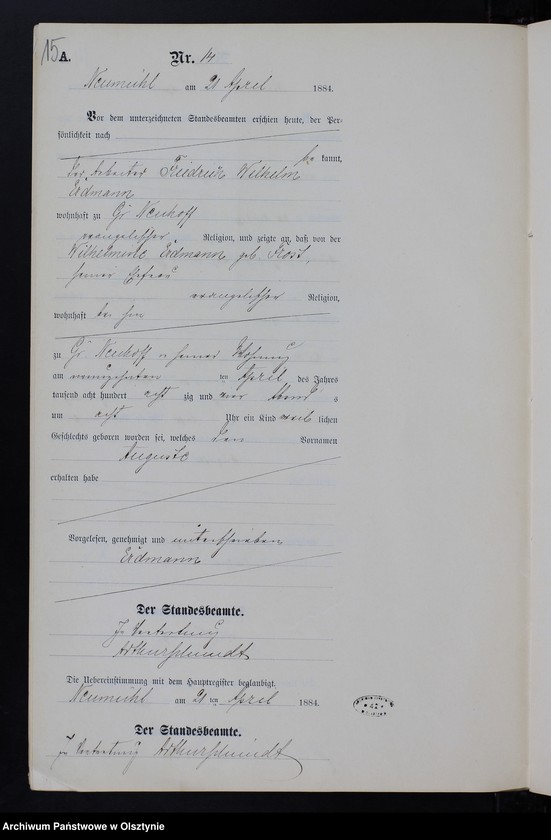 15
A.
Nr. 14
Neumühl am 21 April 1884.
Vor dem unterzeichneten Standesbeamten erschien heute, der Per-
sönlichkeit nach
be kannt,
der Arbeiter Friedrich Wilhelm
Erdmann
wohnhaft zu Gr Neuhoff
evangelischer Religion, und zeigte an, daß von der
Wilhelmine Erdmann geb Frost,
seiner Ehefrau
evangelischer Religion,
wohnhaft bei ihm
zu Gr Neuhoff in seiner Wohnung
am neunzehnten ten April des Jahres
tausend acht hundert acht zig und vier Abends
um acht Uhr ein Kind weib lichen
Geschlechts geboren worden sei, welches den Vornamen
Auguste
erhalten habe
Vorgelesen, genehmigt und unterschrieben
Erdmann
Der Standesbeamte.
In Vertretung
Die Uebereinstimmung mit dem Hauptregister beglaubigt.
Neumühl am 21 ten April 1884.
Der Standesbeamte.
In Vertretung
Archiwum Państwowe w Olsztynie